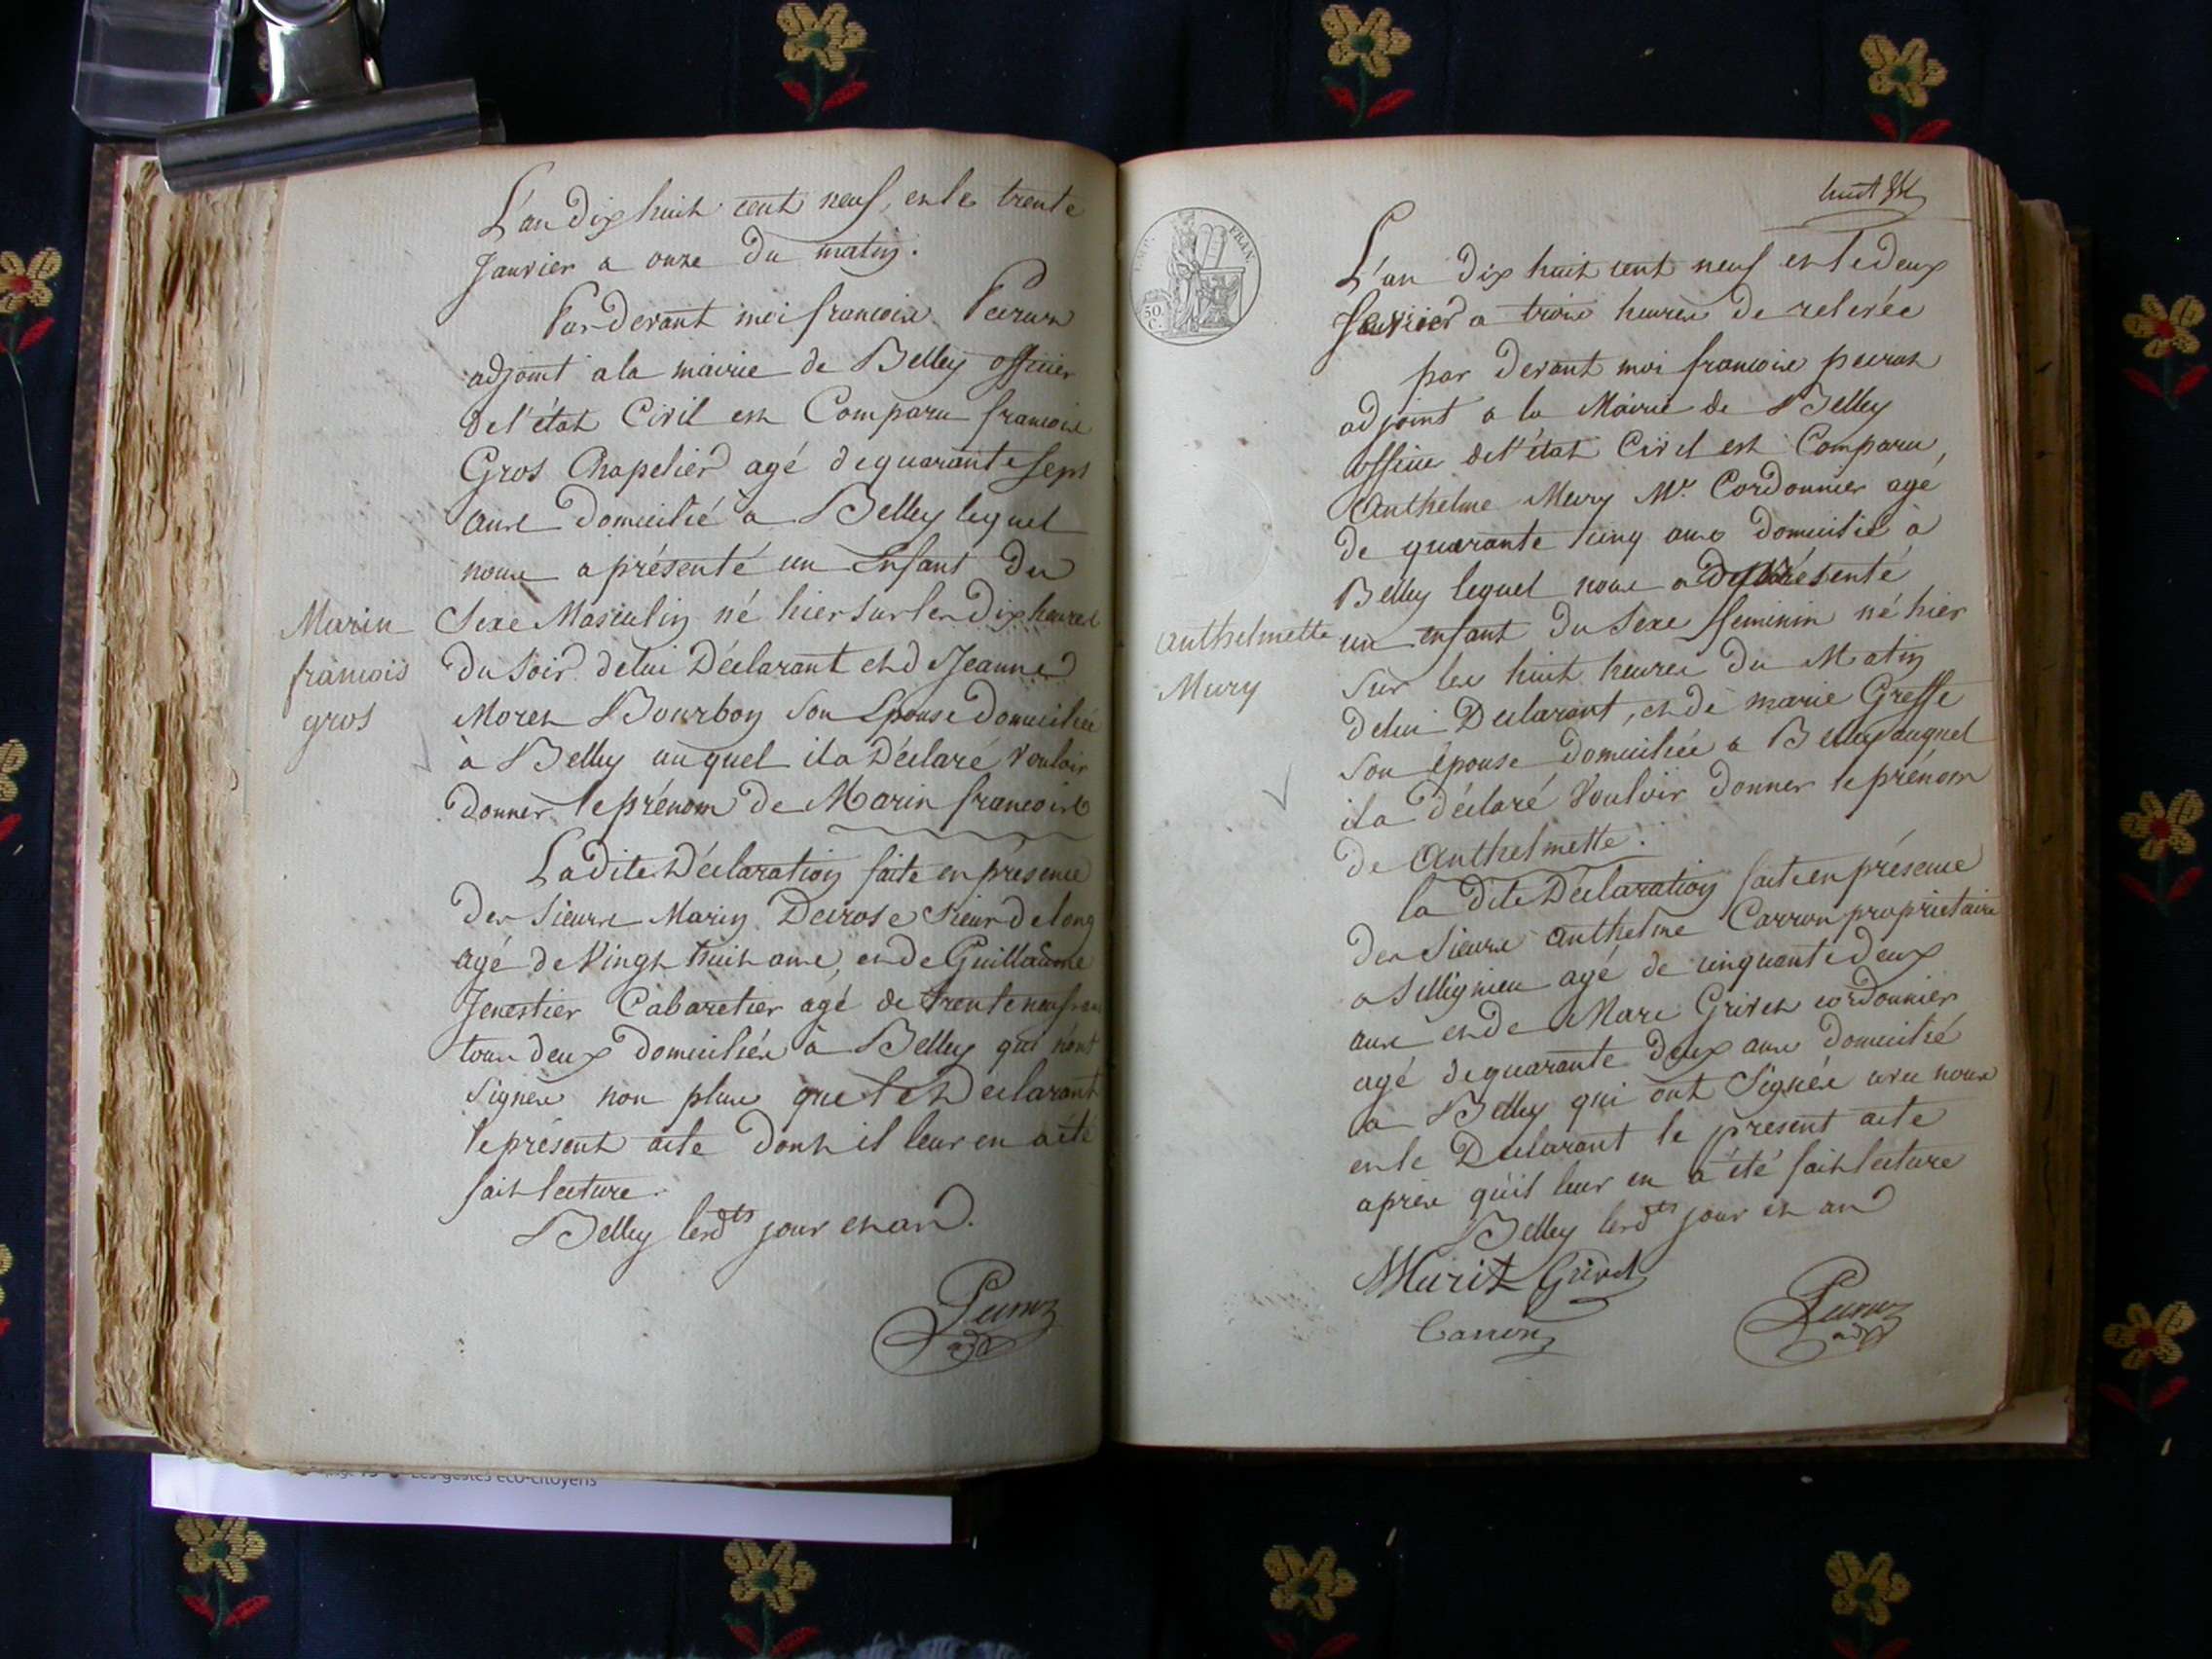 L'an dix huit cent neuf, et le trente
Janvier a onze du matin.
Pardevant moi francois Peiron
adjoint a la mairie de Belley officier
de l'état Civil est Comparu francois
Gros Chapelier agé de quarante sept
ans domicilié a Belley lequel
nous a présenté un Enfant du
Sexe Masculin né hier sur les dix heures
du Soir de lui Déclarant et de Jeanne
Moret Bourbon son Epouse domiciliée
à Belley auquel il a Déclaré Vouloir
donner le prénom de Marin francois
La dite Déclaration faite en présence
des Sieurs Marin Decrose Sieur de long
agé de Vingt huit ans, et de Guillaume
Jenestier Cabaretier agé de trente neuf ans
tous deux domiciliés à Belley qui n'ont
signés non plus que le Déclarant
le présent acte dont il leur en a été
fait lecture.
Belley lesdts jour et an.
Marin
francois
gros
huit
EMP. FRAN.
50
C.
L'an dix huit cent neuf et le deux
fevrier a trois heures de relevée
par devant moi francois peiron
adjoint a la Mairie de Belley
officier de l'état Civil est Comparu,
Anthelme Mury Mr. Cordonnier agé
de quarante cinq ans domicilié à
Belley lequel nous a présenté
un enfant du Sexe feminin né hier
sur les huit heures du Matin
de lui Declarant, et de marie Greffe
son épouse domiciliée a Belley auquel
il a déclaré Vouloir donner le prénom
de Anthelmette.
la dite Déclaration faite en présence
des Sieurs anthelme Carron proprietaire
a Sillignieu agé de cinquante deux
ans et de Marc Grivet cordonnier
agé de quarante deux ans domicilié
a Belley qui ont Signés avec nous
et le Declarant le présent acte
après qu'il leur en a été fait lecture
Belley lesdts jour et an
Murit Grivet
Carron
anthelmette
Mury
Les gestes eco-citoyens